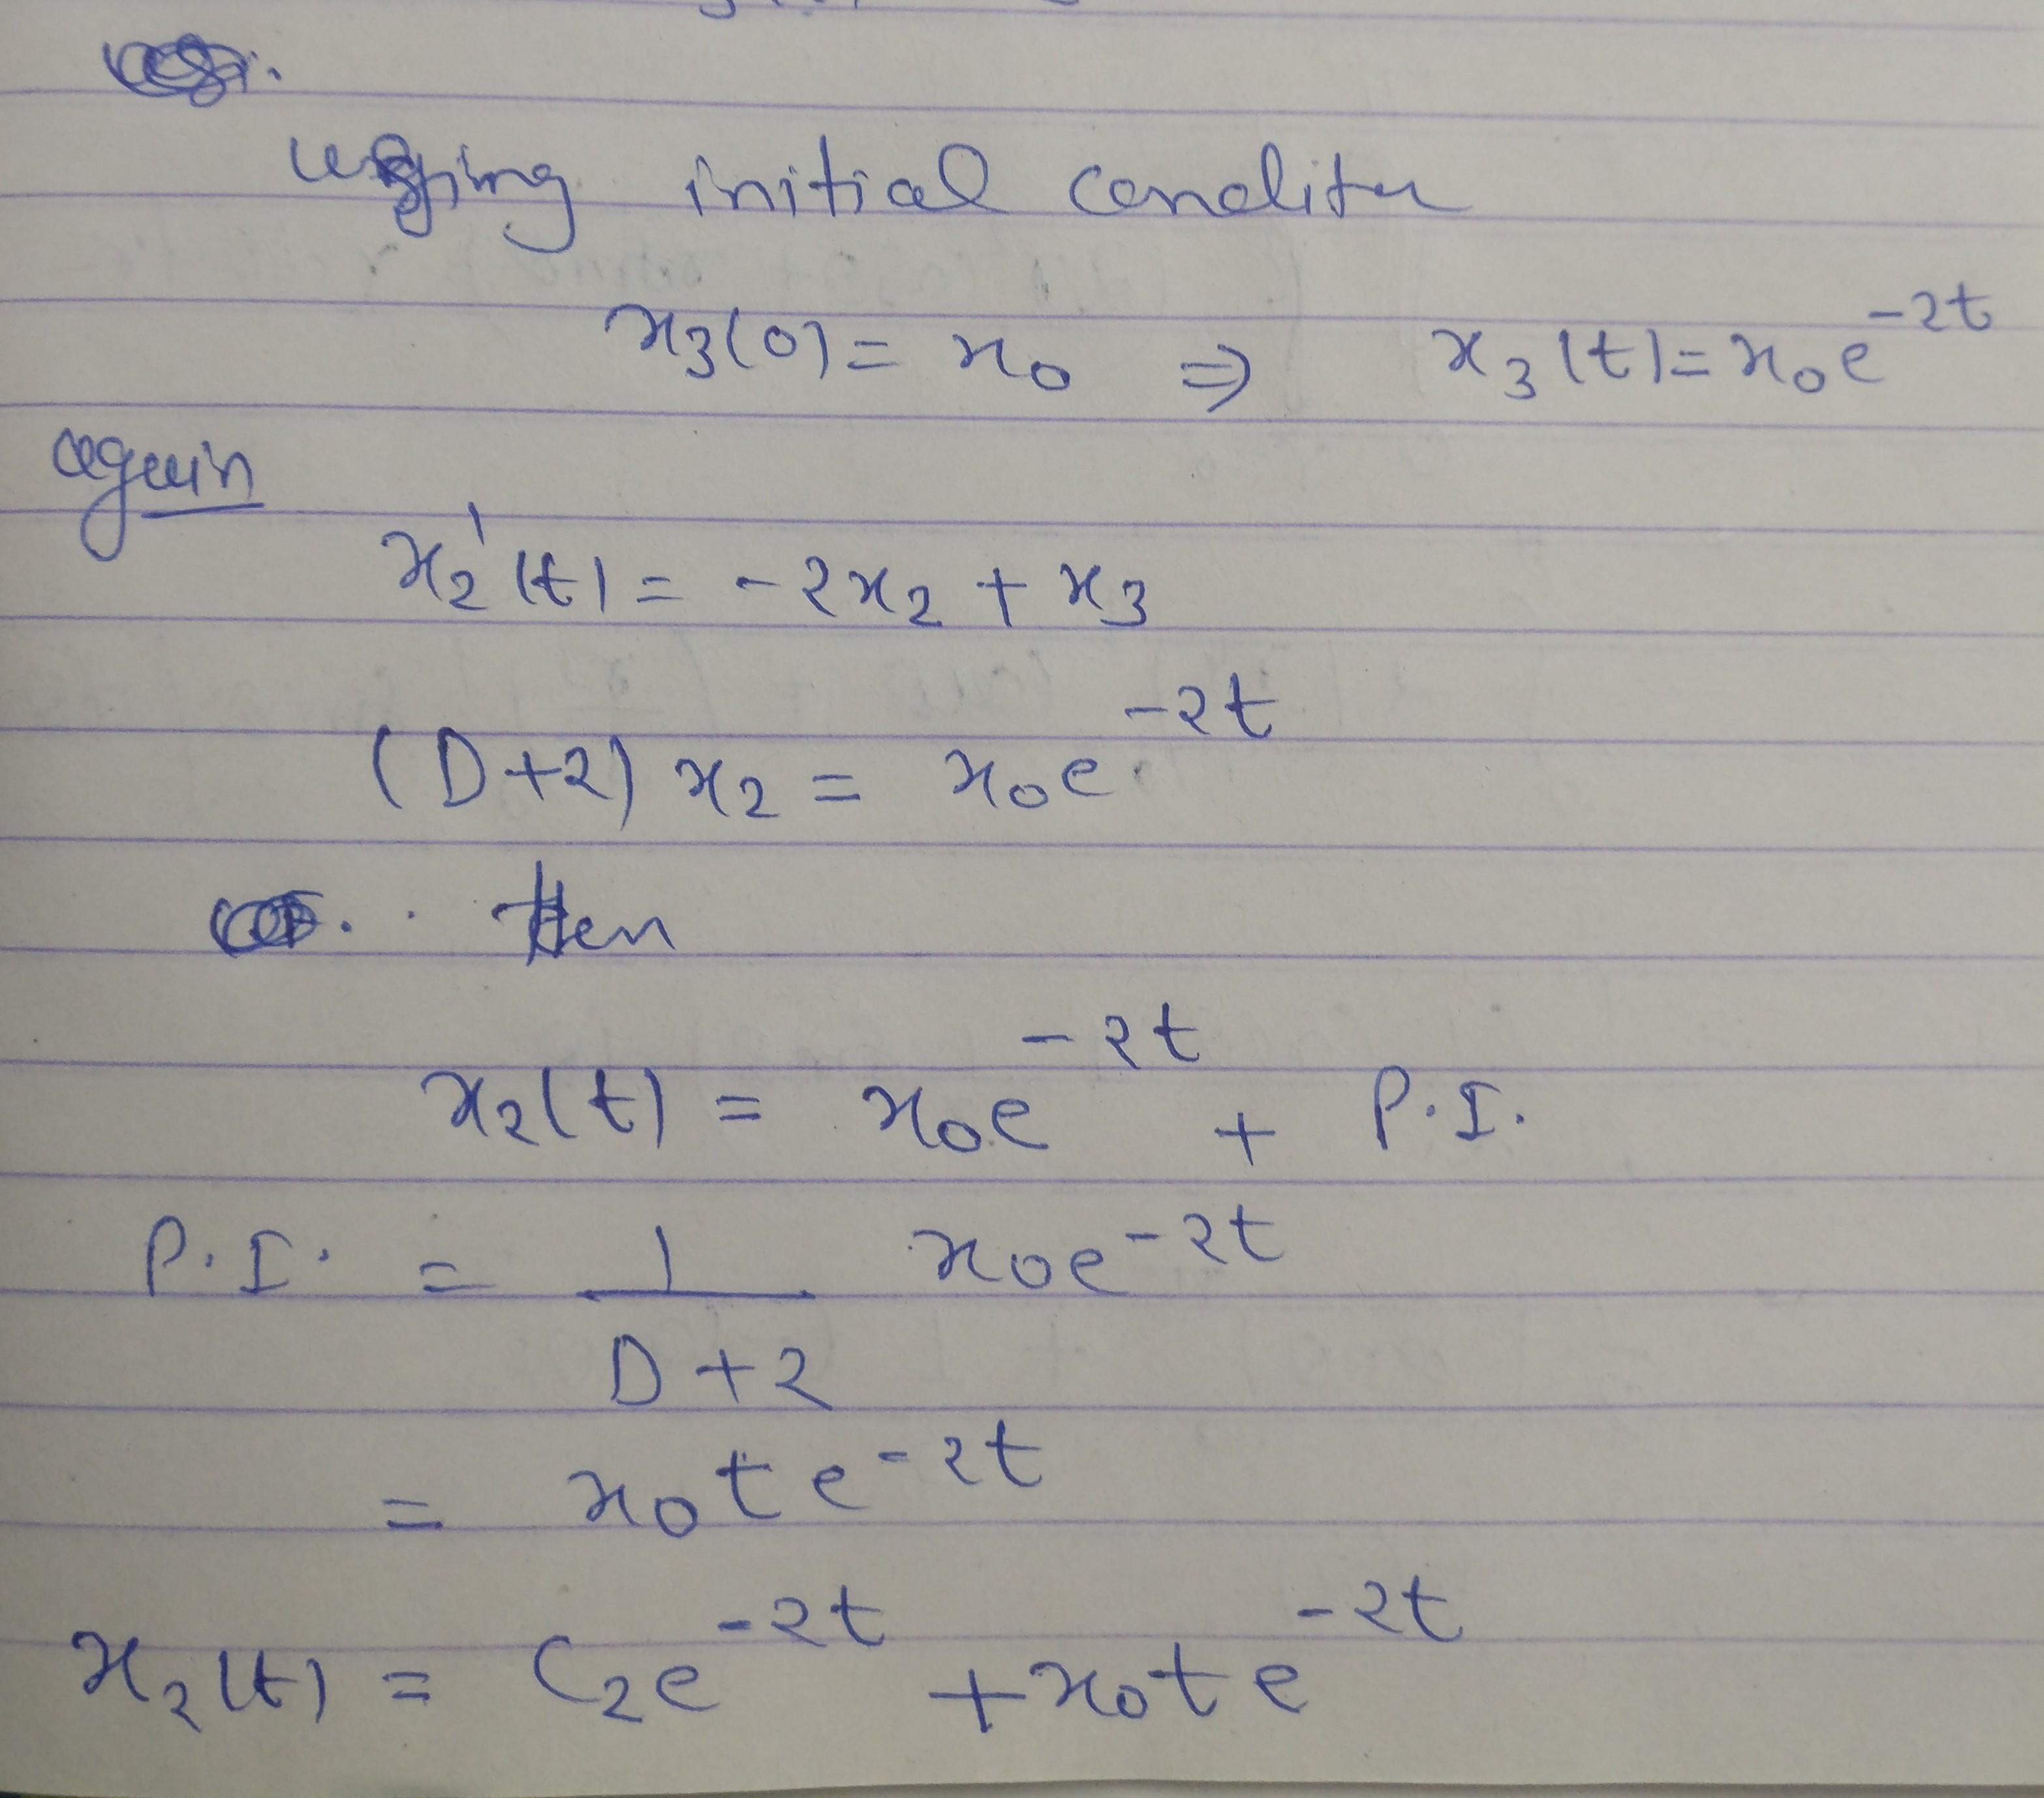 using initial condition
x₃(0) = x₀ ⇒ x₃(t) = x₀e^{-2t}
again
x₂'(t) = -2x₂ + x₃
(D+2) x₂ = x₀e^{-2t}
then
x₂(t) = x₀e^{-2t} + P.I.
P.I. = \frac{1}{D+2} x₀e^{-2t}
= x₀te^{-2t}
x₂(t) = C₂e^{-2t} + x₀te^{-2t}